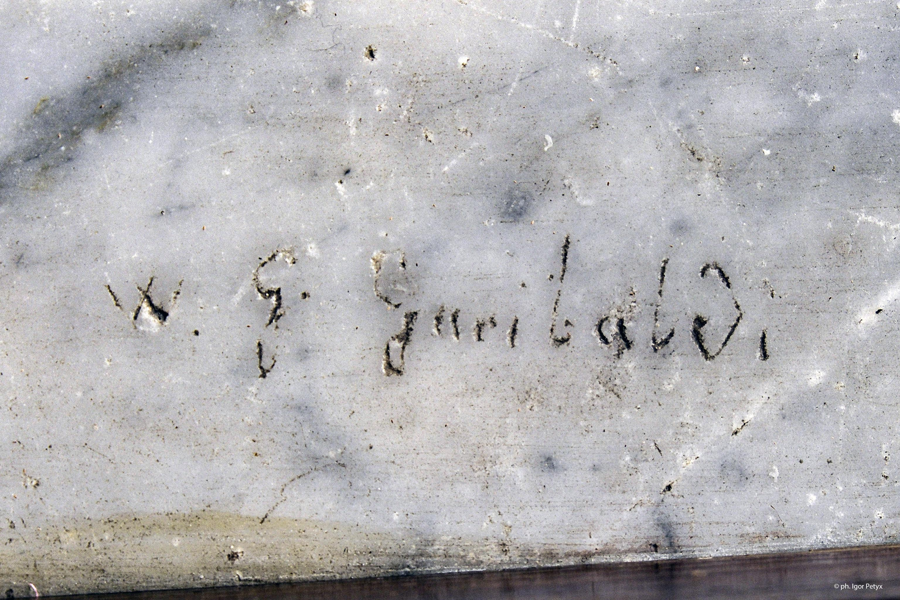 W. G. Garibaldi
© ph. Igor Petyx